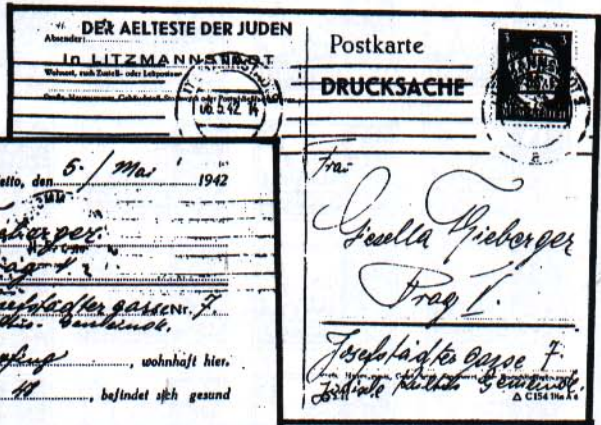 DER AELTESTE DER JUDEN
Absender:
in LITZMANNSTADT
Wohnort, auch Zustell- oder Leitpostamt
06.5.42 14
Postkarte
DRUCKSACHE
Frau
Gisella Thieberger
Prag V.
Josefstädter Gasse 7.
Jüdische Kultus Gemeinde.
Δ C154 Din A 6
etto, den 5. / Mai 1942
berger
Prag V.
gasse Nr. 7.
Kultus- Gemeinde.
, wohnhaft hier.
, befindet sich gesund